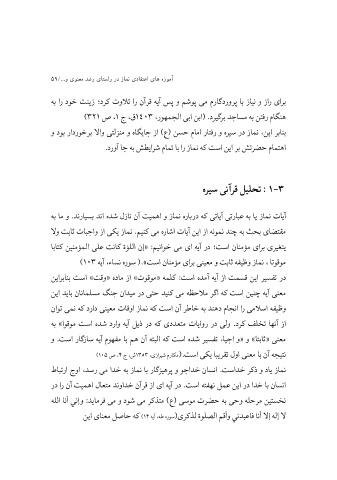 آموزه های اعتقادی نماز در راستای رشد معنوی و.../۵۹
برای راز و نیاز با پروردگارم می پوشم و پس آیه قرآن را تلاوت کرد؛ زینت خود را به
هنگام رفتن به مساجد برگیرد. (ابن ابی الجمهور، ۱۴۰۳ق، ج ۱، ص ۳۲۱)
بنابر این، نماز در سیره و رفتار امام حسن (ع) از جایگاه و منزلتی والا برخوردار بود و
اهتمام حضرتش بر این است که نماز را با تمام شرایطش به جا آورد.
۳-۱ : تحلیل قرآنی سیره
آیات نماز یا به عبارتی آیاتی که درباره نماز و اهمیت آن نازل شده اند بسیارند. و ما به
مقتضای بحث به چند نمونه از این آیات اشاره می کنیم. نماز یکی از واجبات ثابت ولا
یتغیری برای مؤمنان است؛ در آیه ای می خوانیم: «إن اللؤة کانت علی المؤمنین کتابا
موقوتا ، نماز وظیفه ثابت و معینی برای مؤمنان است».( سوره نساء، آیه ۱۰۳)
در تفسیر این قسمت از آیه آمده است: کلمه «موقوت» از ماده «وقت» است بنابراین
معنی آیه چنین است که اگر ملاحظه می کنید حتی در میدان جنگ مسلمانان باید این
وظیفه اسلامی را انجام دهند به خاطر آن است که نماز اوقات معینی دارد که نمی توان
از آنها تخلف کرد. ولی در روایات متعددی که در ذیل آیه وارد شده است موقوا» به
معنی «ثابتا» و «و اجبا، تفسیر شده است که البته آن هم با مفهوم آیه سازگار است. و
نتیجه آن با معنی اول تقریبا یکی است.(مکارم شیرازی، ۱۳۵۳ش، ج ۴، ص ۱۰۵)
نماز یاد و ذکر خداست. انسان خداجو و پرهیزگار با نماز به خدا می رسد، اوج ارتباط
انسان با خدا در این عمل نهفته است. در آیه ای از قرآن خداوند متعال اهمیت آن را در
نخستین مرحله وحی به حضرت موسی (ع) متذکر می شود و می فرماید: وإني أنا الله
لا إله إلا أنا فاعبدني وأقم الصلوة لذکری(سوره طه، آیه ۱۴) که حاصل معنای این